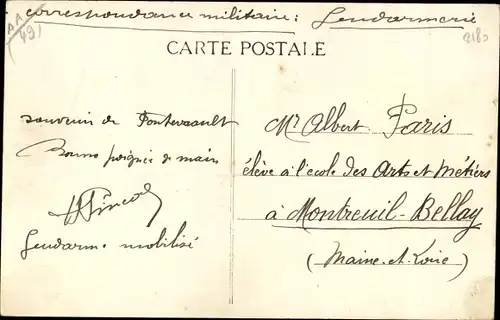 correspondance militaire: Gendarmerie
CARTE POSTALE
souvenir de Fontevrault
Bonne poignée de main
Gendarme mobilisé
Mr Albert Paris
élève à l'école des Arts et Métiers
à Montreuil-Bellay
(Maine-et-Loire)